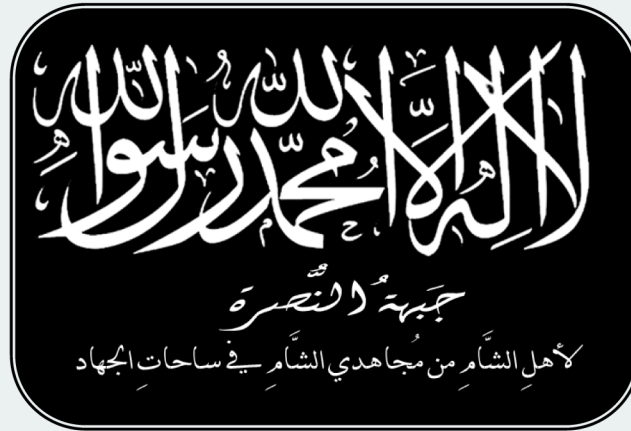 لا إله إلا الله محمد رسول الله
جَبهةُ النُّصرة
لأهلِ الشَّامِ من مُجاهدي الشَّامِ في ساحاتِ الجهاد